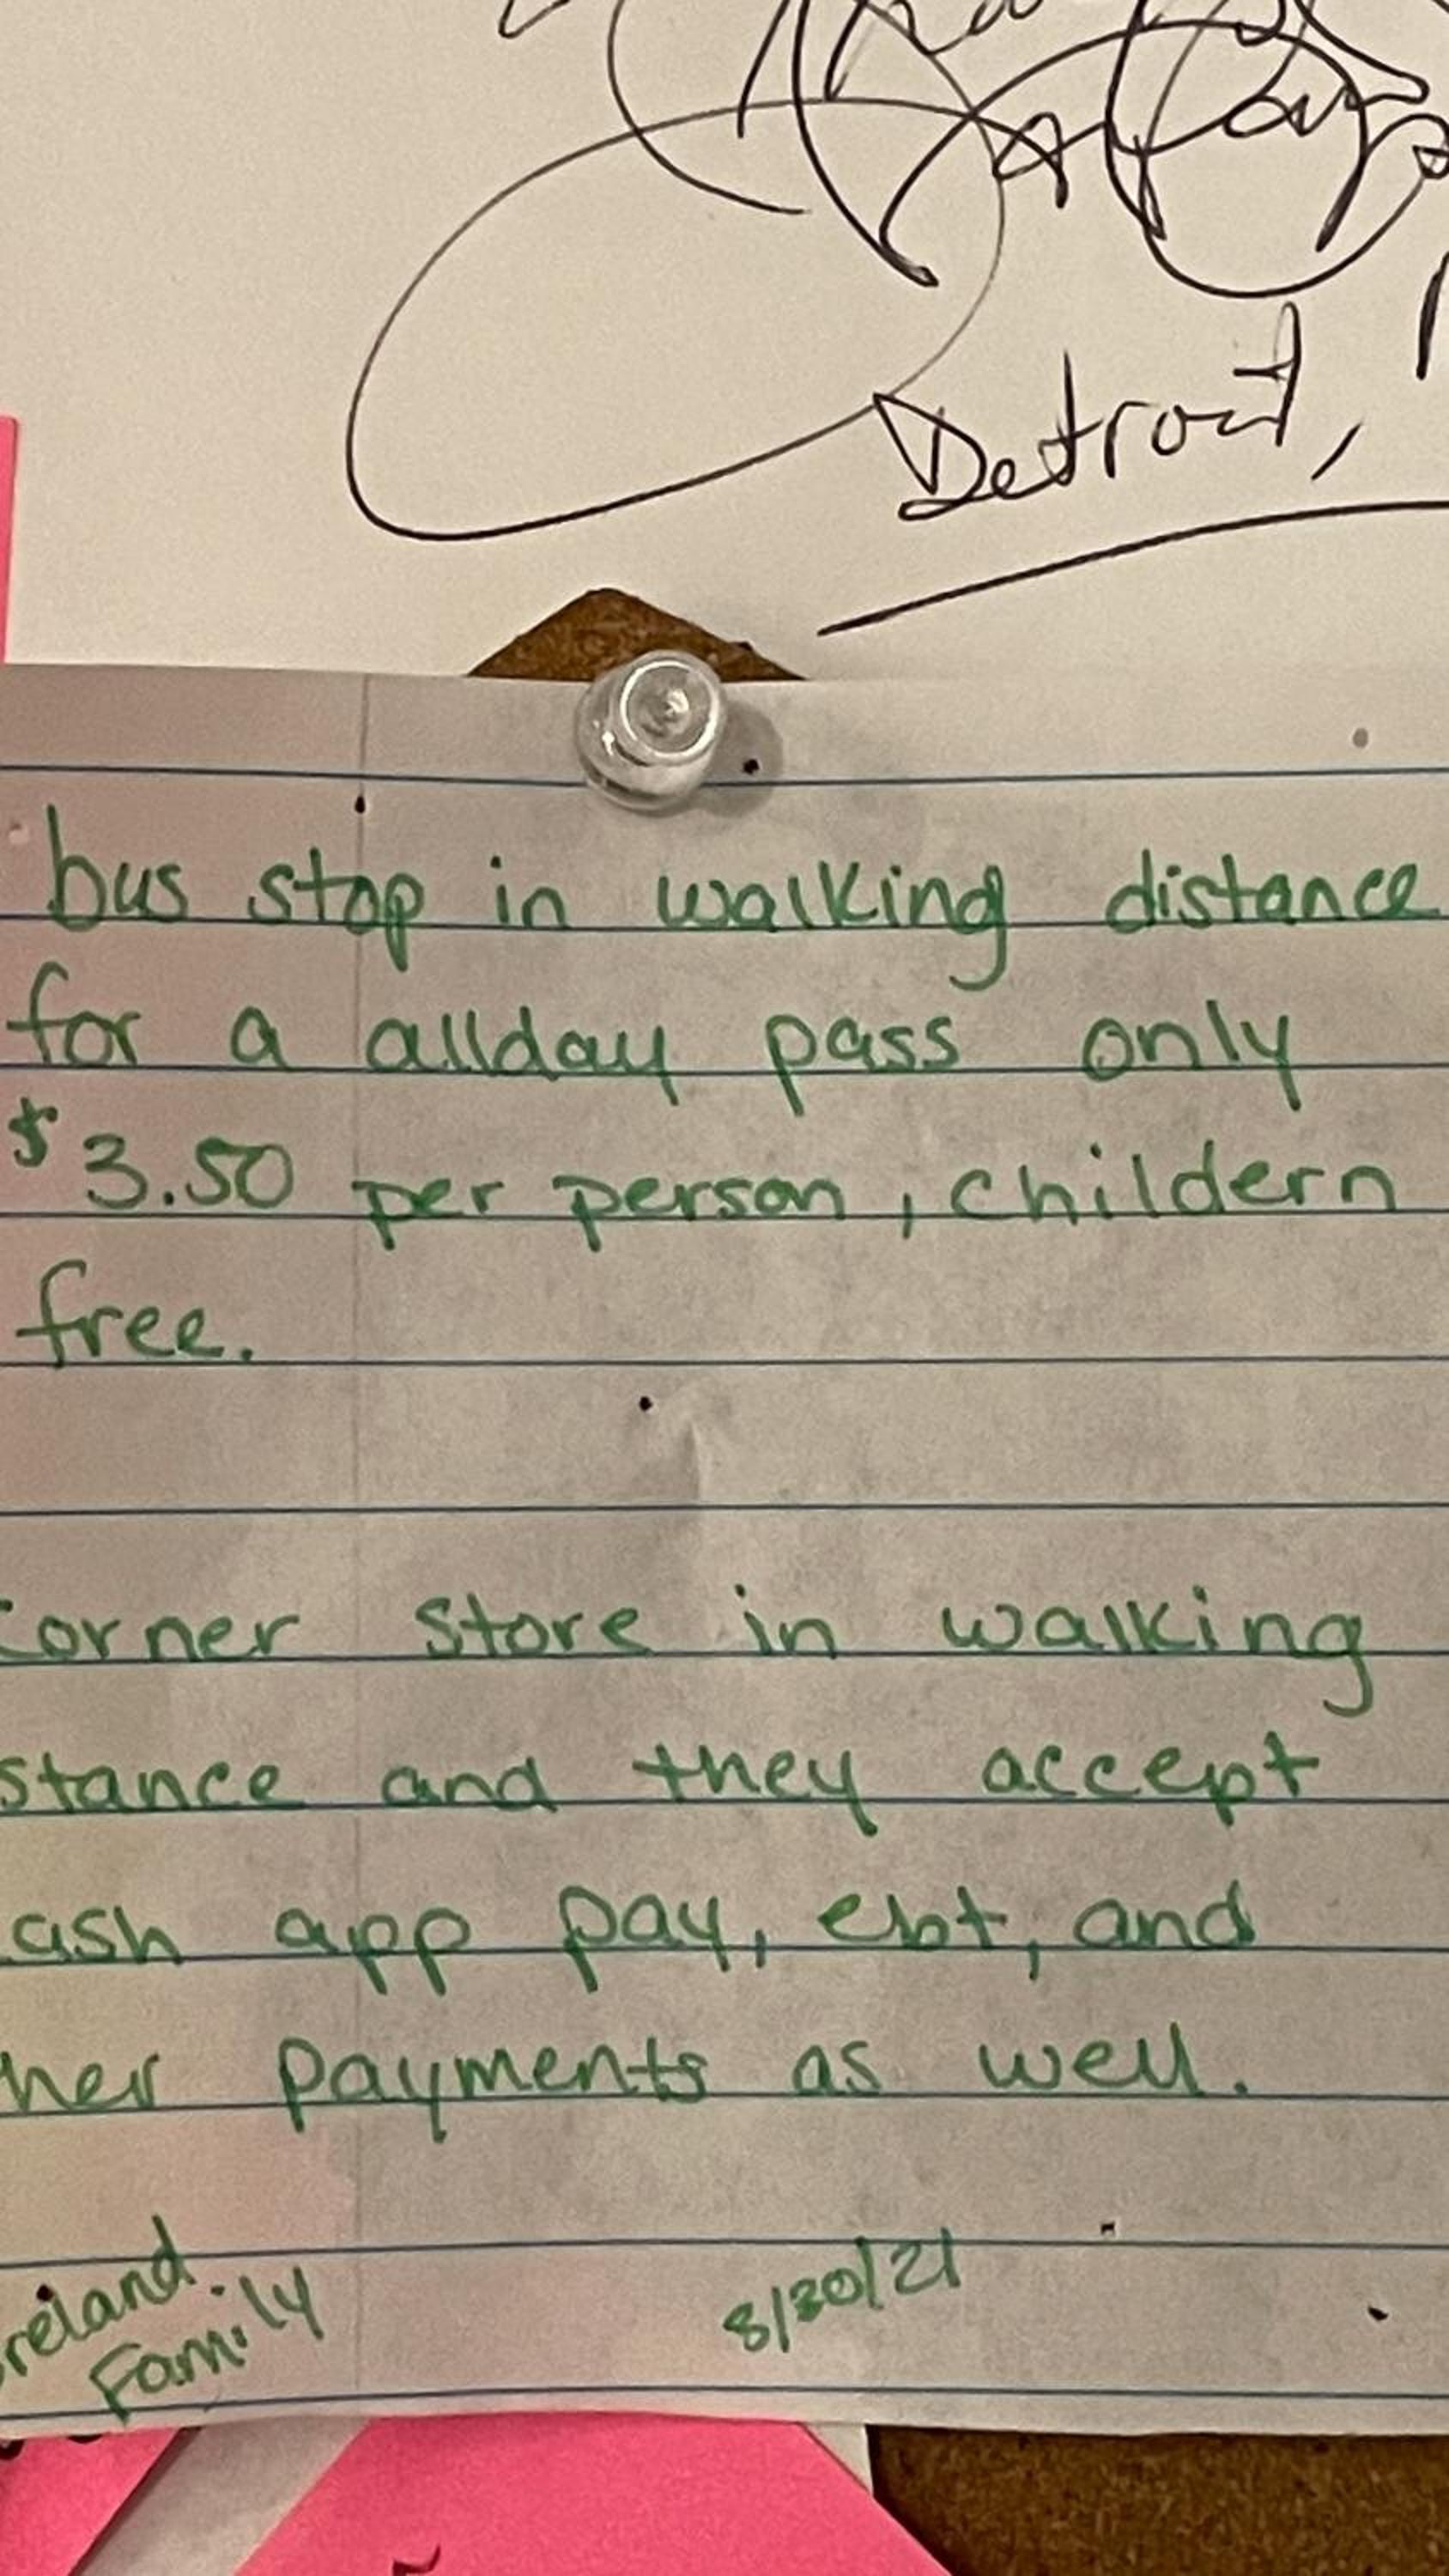 Detroit,
bus stop in walking distance
for a allday pass only
$3.50 per person, childern
free.
corner store in walking
stance and they accept
ash app pay, ebt, and
her payments as well.
reland
Family
8/30/21